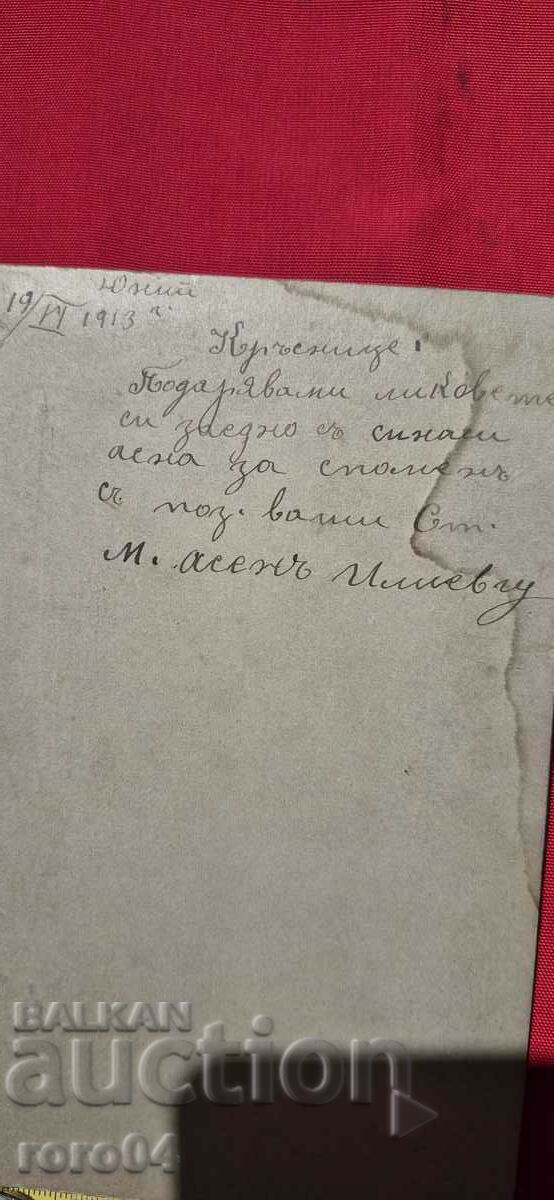 Юний
19/VI 1913 г.
Кръснице!
Подарявами ликовете
си заедно съ синаси
асена за споменъ
съ поз. вами Ст.
М. Асенъ Илиевгу
BALKAN
auction
roro04